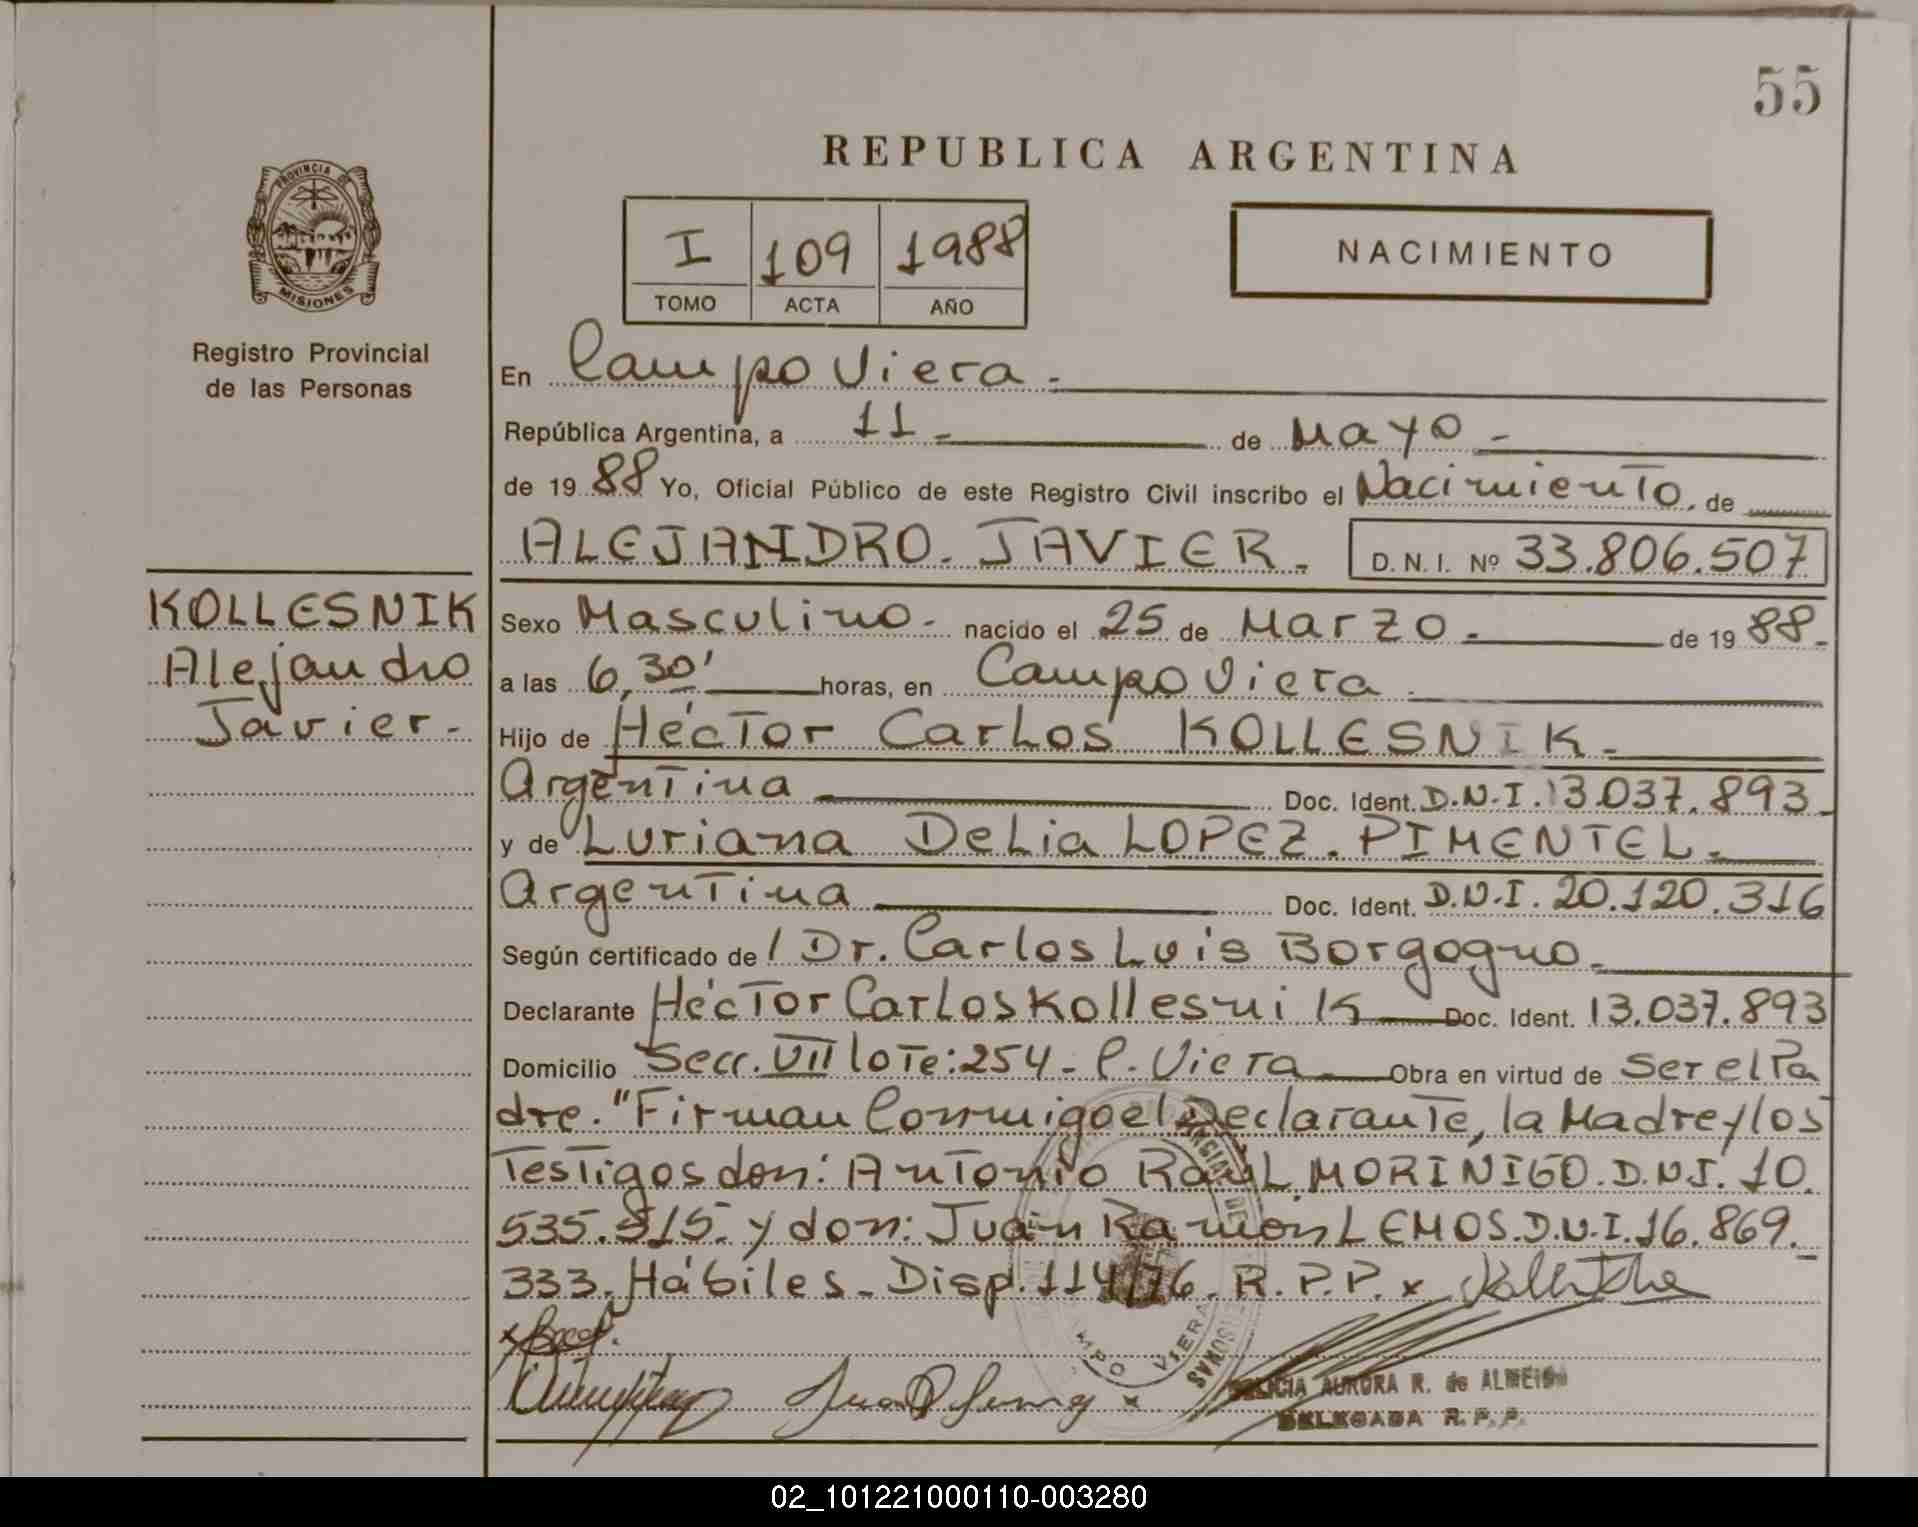 55
REPUBLICA ARGENTINA
PROVINCIA DE
MISIONES
Registro Provincial
de las Personas
I 109 1988
TOMO ACTA AÑO
NACIMIENTO
En Campo Viera.
República Argentina, a 11 - de Mayo -
de 19 88 Yo, Oficial Público de este Registro Civil inscribo el Nacimiento. de
ALEJANDRO. JAVIER. D. N. I. Nº 33.806.507
KOLLESNIK
Alejandro
Javier.-
Sexo Masculino - nacido el 25 de Marzo - de 19 88.-
a las 6,30' horas, en Campo Viera.
Hijo de Héctor Carlos KOLLESNIK.
Argentina Doc. Ident. D.N.I. 13.037.893.
y de Luriana Delia LOPEZ. PIMENTEL.
Argentina Doc. Ident. D.N.I. 20.120.316
Según certificado de / Dr. Carlos Luis Borgogno.
Declarante Héctor Carlos Kollesnik Doc. Ident. 13.037.893
Domicilio Secc. VII lote: 254 - C. Viera Obra en virtud de Ser el Pa
dre. "Firman Conmigo el Declarante, la Madre y los
Testigos don: Antonio Raúl MORINIGO. D.N.I. 10.
535.515. y don: Juan Ramón LEMOS. D.N.I. 16.869.
333. Hábiles. Disp. 114/76. R.P.P. x
CAMPO VIERA
DELICIA AURORA R. de ALMEIDA
DELEGADA R. P. P.
02_101221000110-003280